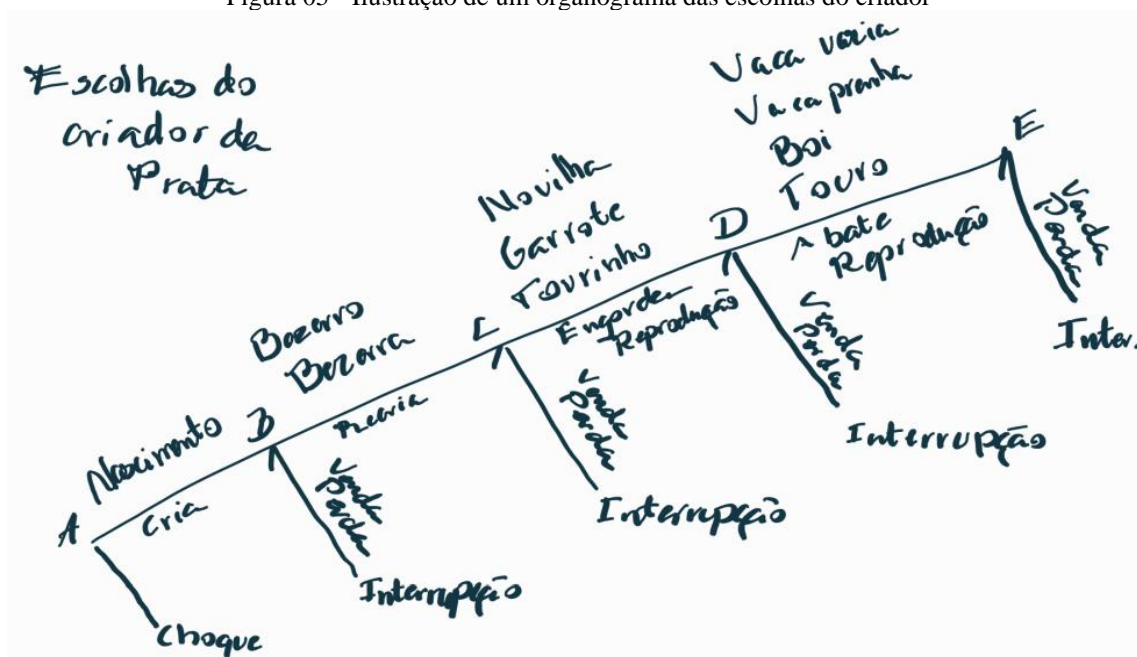 Figura 03 - Ilustração de um organograma das escolhas do criador
Escolhas do
criador da
Prata
A
Nascimento
Cria
Choque
B
Bezerro
Bezerra
Recria
Venda
Perda
Interrupção
C
Novilha
Garrote
Tourinho
Engorda
Reprodução
Venda
Perda
Interrupção
D
Vaca vazia
Vaca prenha
Boi
Touro
Abate
Reprodução
Venda
Perda
Interrupção
E
Venda
Perda
Inter.